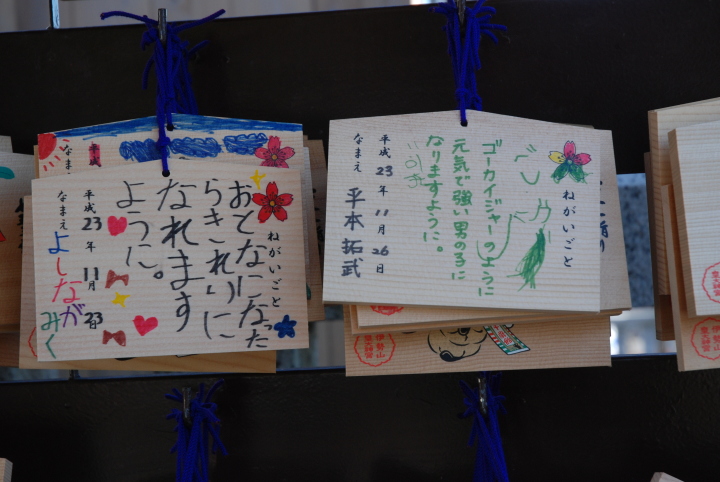 ねがいごと
おとなになった
らきれいに
なれます
ように。
平成23年11月23日
なまえ
よしなが
みく
ねがいごと
ゴーカイジャーのように
元気で強い男の子に
なりますように。
平成23年11月26日
なまえ 平本拓武
平成
なまえ